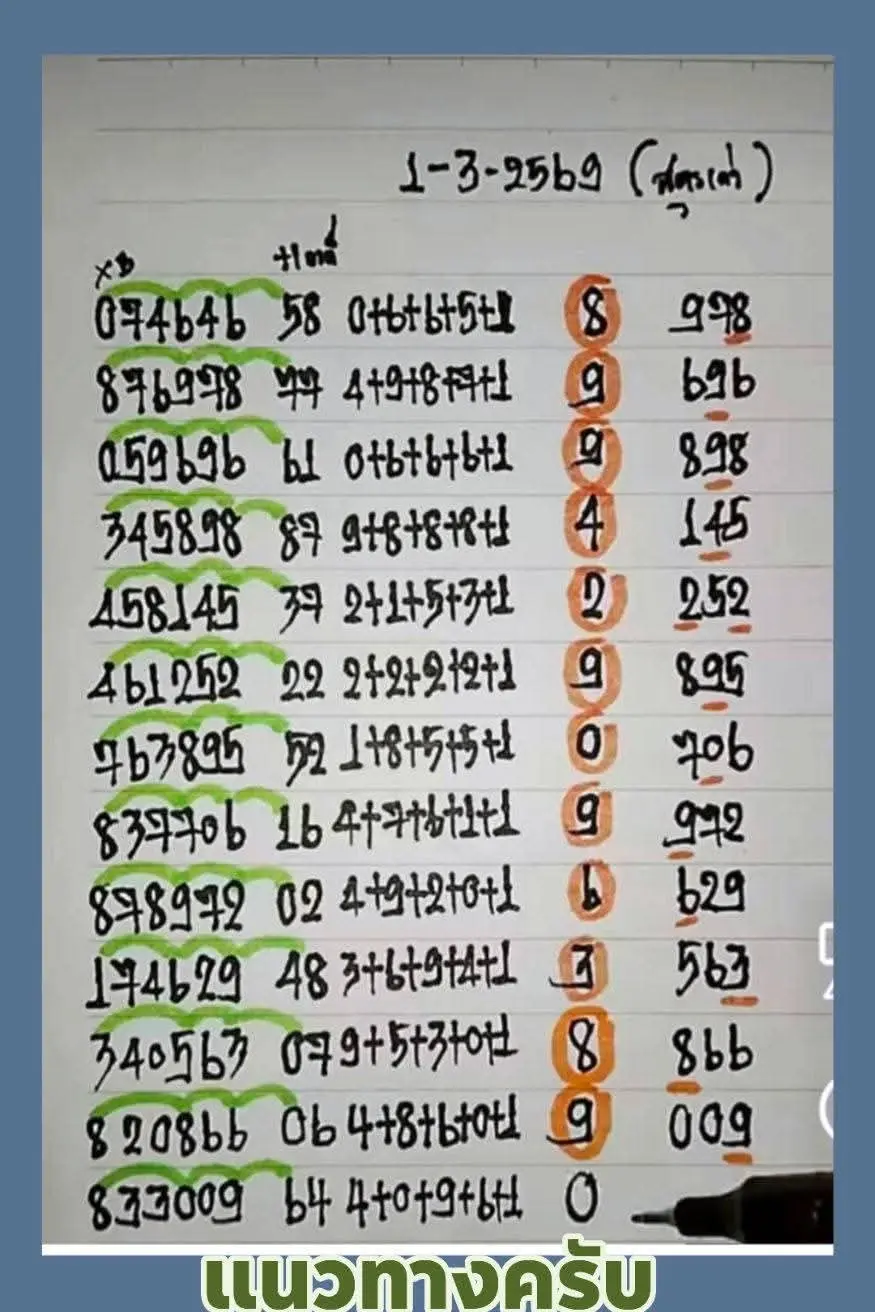 1-3-2569 (สูตรเก่า)
×3 +1 คงที่
074646 58 0+6+6+5+1 8 978
876978 77 4+9+8+7+1 9 696
059696 61 0+6+6+6+1 9 898
345898 87 9+8+8+8+1 4 145
458145 37 2+1+5+3+1 2 252
461252 22 2+2+2+2+1 9 895
763895 52 1+8+5+5+1 0 706
837706 16 4+7+6+1+1 9 972
878972 02 4+9+2+0+1 6 629
174629 48 3+6+9+4+1 3 563
340563 07 9+5+3+0+1 8 866
820866 06 4+8+6+0+1 9 009
833009 64 4+0+9+6+1 0
แนวทางครับ